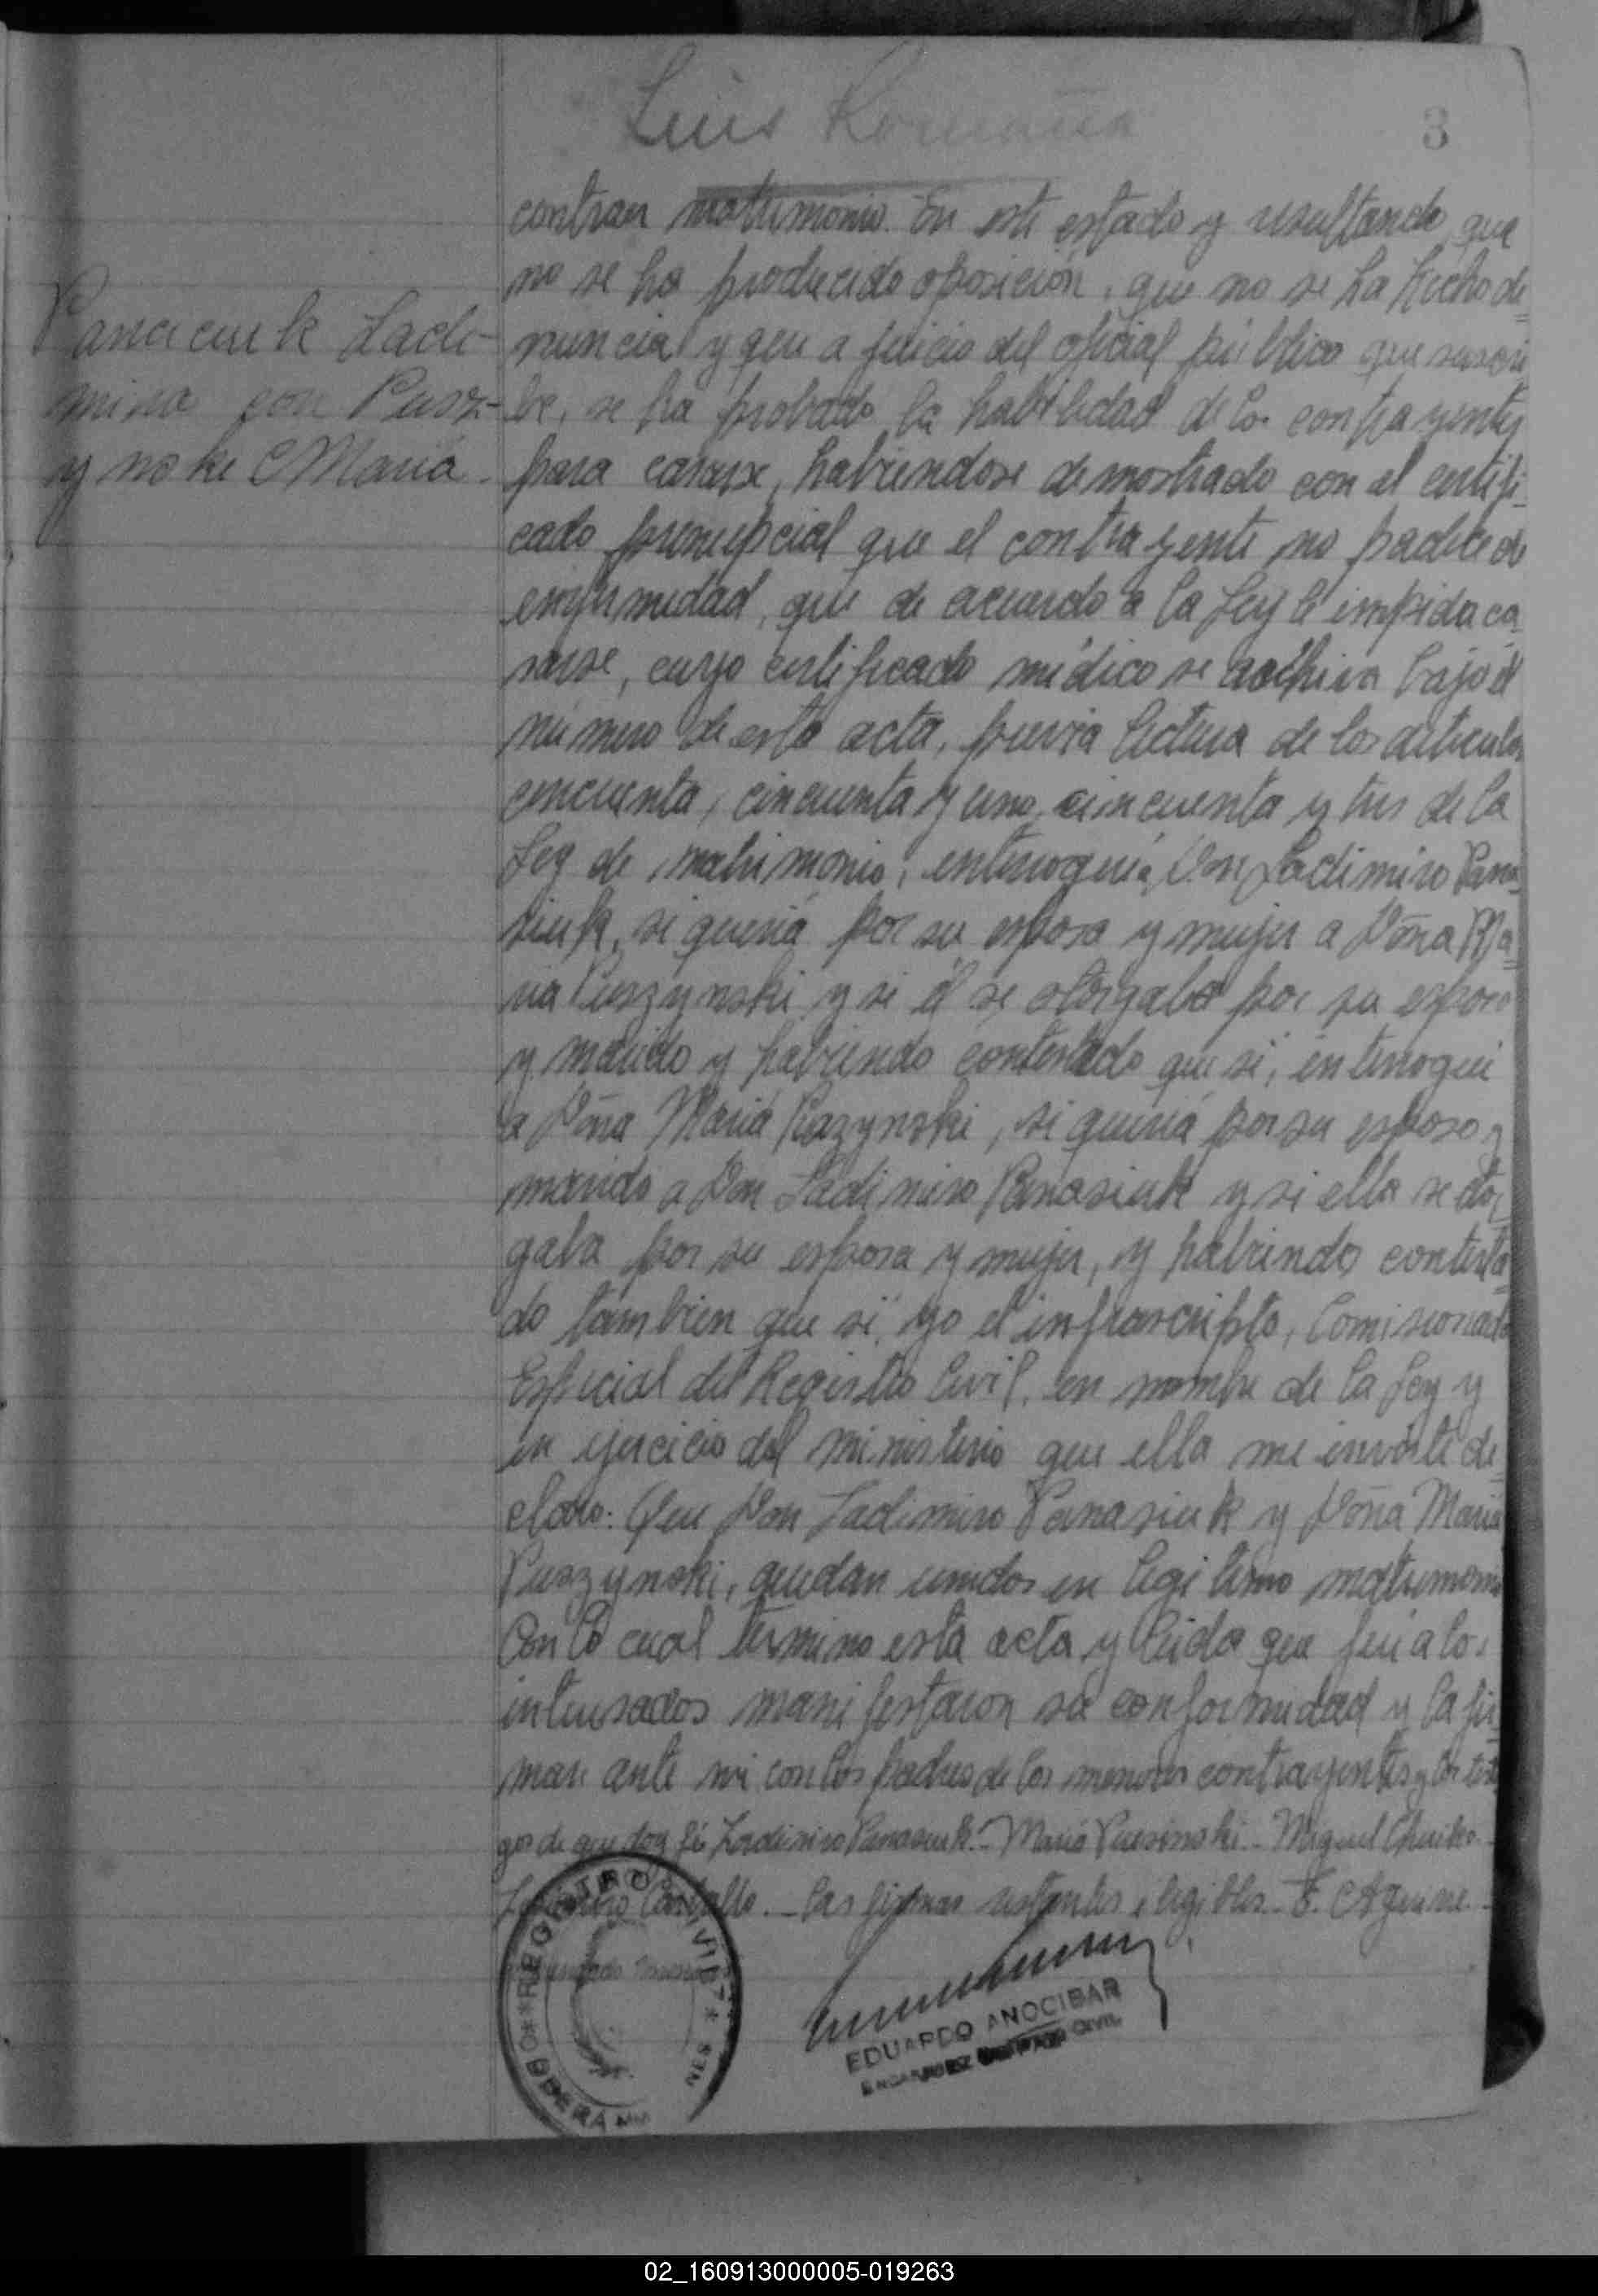 Luis Romaña
3
Panaciuk Ladi-
miro con Pusz-
ynski María.
contran matrimonio. En este estado y resultando que
no se ha producido oposición, que no se ha hecho de=
nuncia y que a juicio del oficial público que suscri
be, se ha probado la habilidad de los contrayentes
para casarse, habiendose demostrado con el certifi-
cado prenupcial que el contrayente no padece de
enfermedad, que de acuerdo a la Ley le impida ca-
sarse, cuyo certificado médico se archiva bajo el
número de esta acta, previa lectura de los articulos
cincuenta, cincuenta y uno, cincuenta y tres de la
Ley de matrimonio, interrogué a Don Ladimiro Pana
siuk, si quería por su esposa y mujer a Doña Ma=
ria Puszynski y si él se otorgaba por su esposo
y marido y habiendo contestado que si, interrogué
a Doña María Puszynski, si quería por su esposo y
marido a Don Ladimiro Panasiuk y si ella se otor
gaba por su esposa y mujer, y habiendo contesta=
do tambien que si, yo el infrascripto, Comisionado
Especial del Registro Civil, en nombre de la Ley y
en ejercicio del ministerio que ella me inviste de=
claro: Que Don Ladimiro Panasiuk y Doña María
Puszynski, quedan unidos en legitimo matrimonio
Con lo cual termino esta acta y leida que fué a los
interesados manifestaron su conformidad y la fir
man ante mi con los padres de los menores contrayentes y los testi
gos de que doy fé Ladimiro Panasiuk.- María Pusinski.- Miguel
Castillo.- las firmas restantes ilegibles.- F. Aguirre.-
REGISTRO CIVIL
OBERÁ
MISIONES
EDUARDO ANOCIBAR